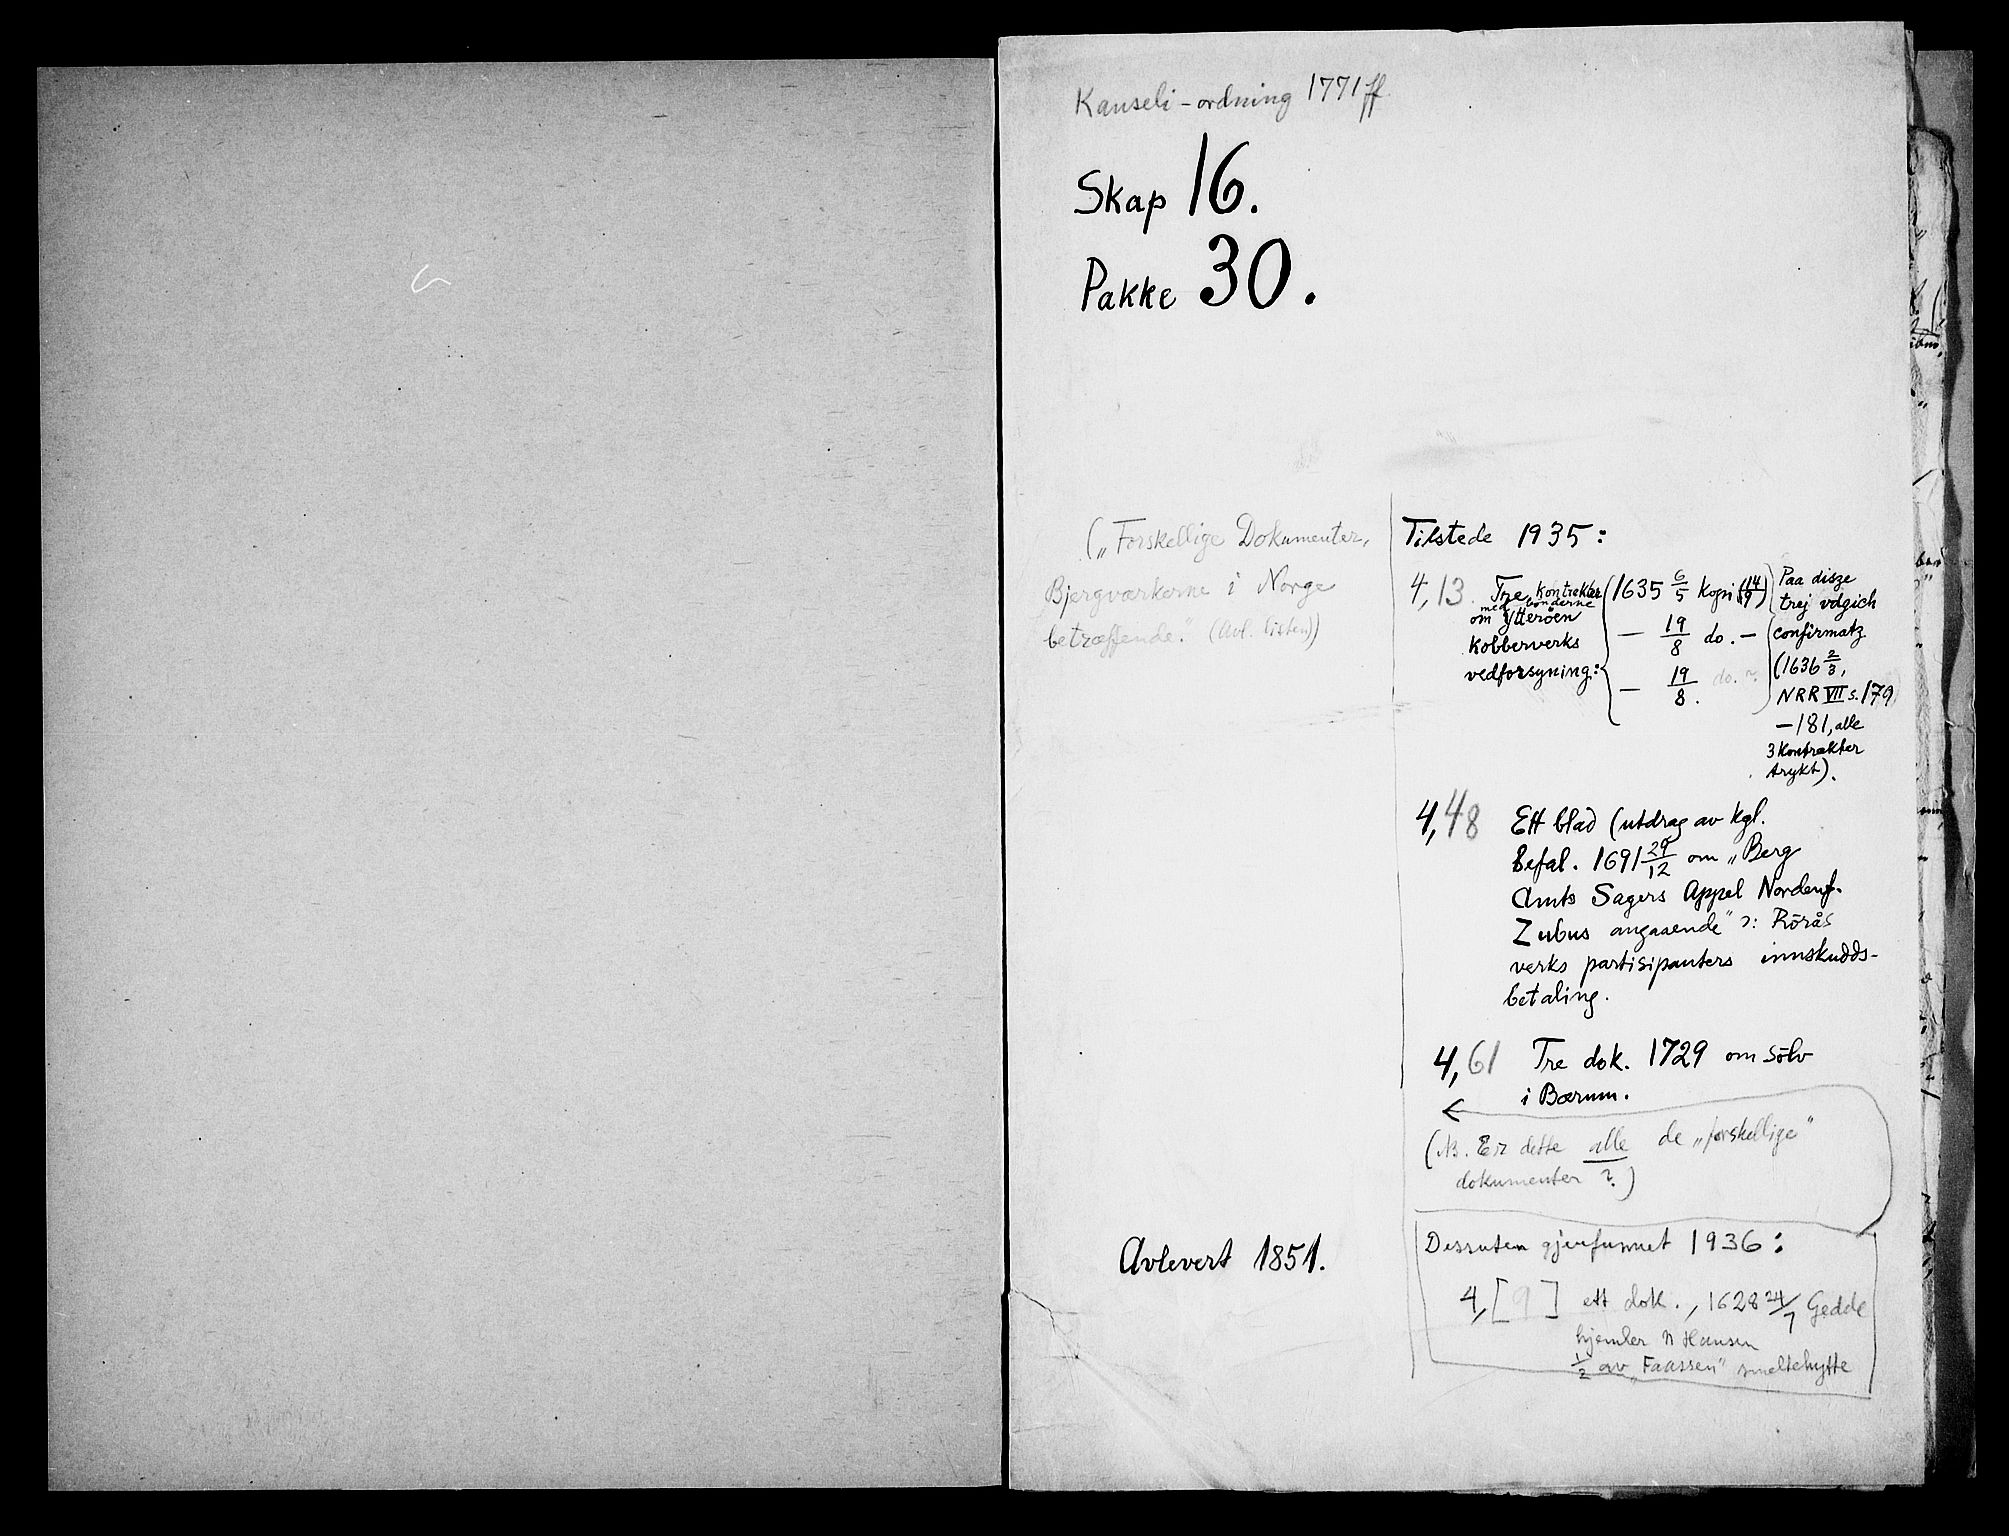 Kanseli-ordning 1771 ff
Skap 16.
Pakke 30.
(„Forskellige Dokumenter,
Bjergværkerne i Norge
betræffende." (Avl. listen))
Avlevert 1851.
Tilstede 1935:
4,13. Tre kontrakter
med bønderne
om Ytterøen
kobberverks
vedforsyning:
1635 6/5 kopi (14/9)
— 19/8 do. —
— 19/8. do. ?
Paa disze
trej vdgich
confirmatz
(1636 2/3,
NRR VII s. 179
—181, alle
3 kontrakter
trykt).
4,48 Ett blad (utdrag av kgl.
befal. 1691 29/12 om „Berg
Amts Sagers Appel Nordenf.
Zubus angaaende" ɔ: Rörås
verks partisipanters innskudds-
betaling.
4,61 Tre dok. 1729 om sölv
i Bærum.
(NB. Er dette alle de „forskellige"
dokumenter ?)
Dessuten gjenfunnet 1936:
4,[9] ett dok., 1628 24/7 Gedde
hjemler N Hansen
1/2 av „Faassen" smeltehytte